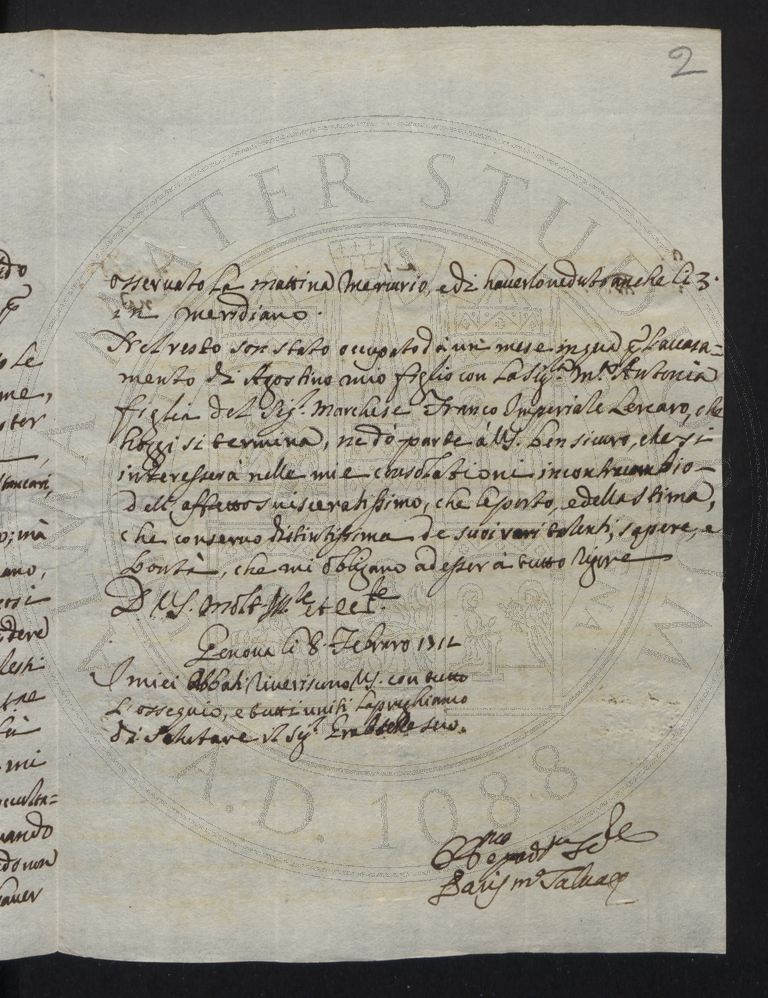 2
osservato la mattina Mercurio, e di haverlo veduto anche li 3.
in meridiano.
Nel resto son stato occupato da un mese in qua p l'accasa=
mento di Agostino mio figlio con la Sig.ra M.a Antonia
figlia del Sig.r Marchese Franco Imperiale Lercaro, che
hoggi si termina, ne dò parte à V.S. ben sicuro, che si
interesserà nelle mie consolationi in contracambio
dell'affetto svisceratissimo, che le porto, e della stima,
che conservo distintissima de suoi rari talenti, sapere, e
bontà, che mi obligano ad esser à tutto rigore
D. V.S. Molt' Ill.e et ecc.te
Genova li 8. Febraro 1712
I miei Abbati riveriscono V.S. con tutto
l'ossequio, e tutti uniti la preghiamo
di salutare il Sig.r fratello suo.
Paris M.a Salvago
ido
le
me,
ster
Stancari,
mà
ano,
idere
lesti
tre
mi
occulta=
uando
do non
haver
ALMA MATER STUDIORUM
A.D. 1088